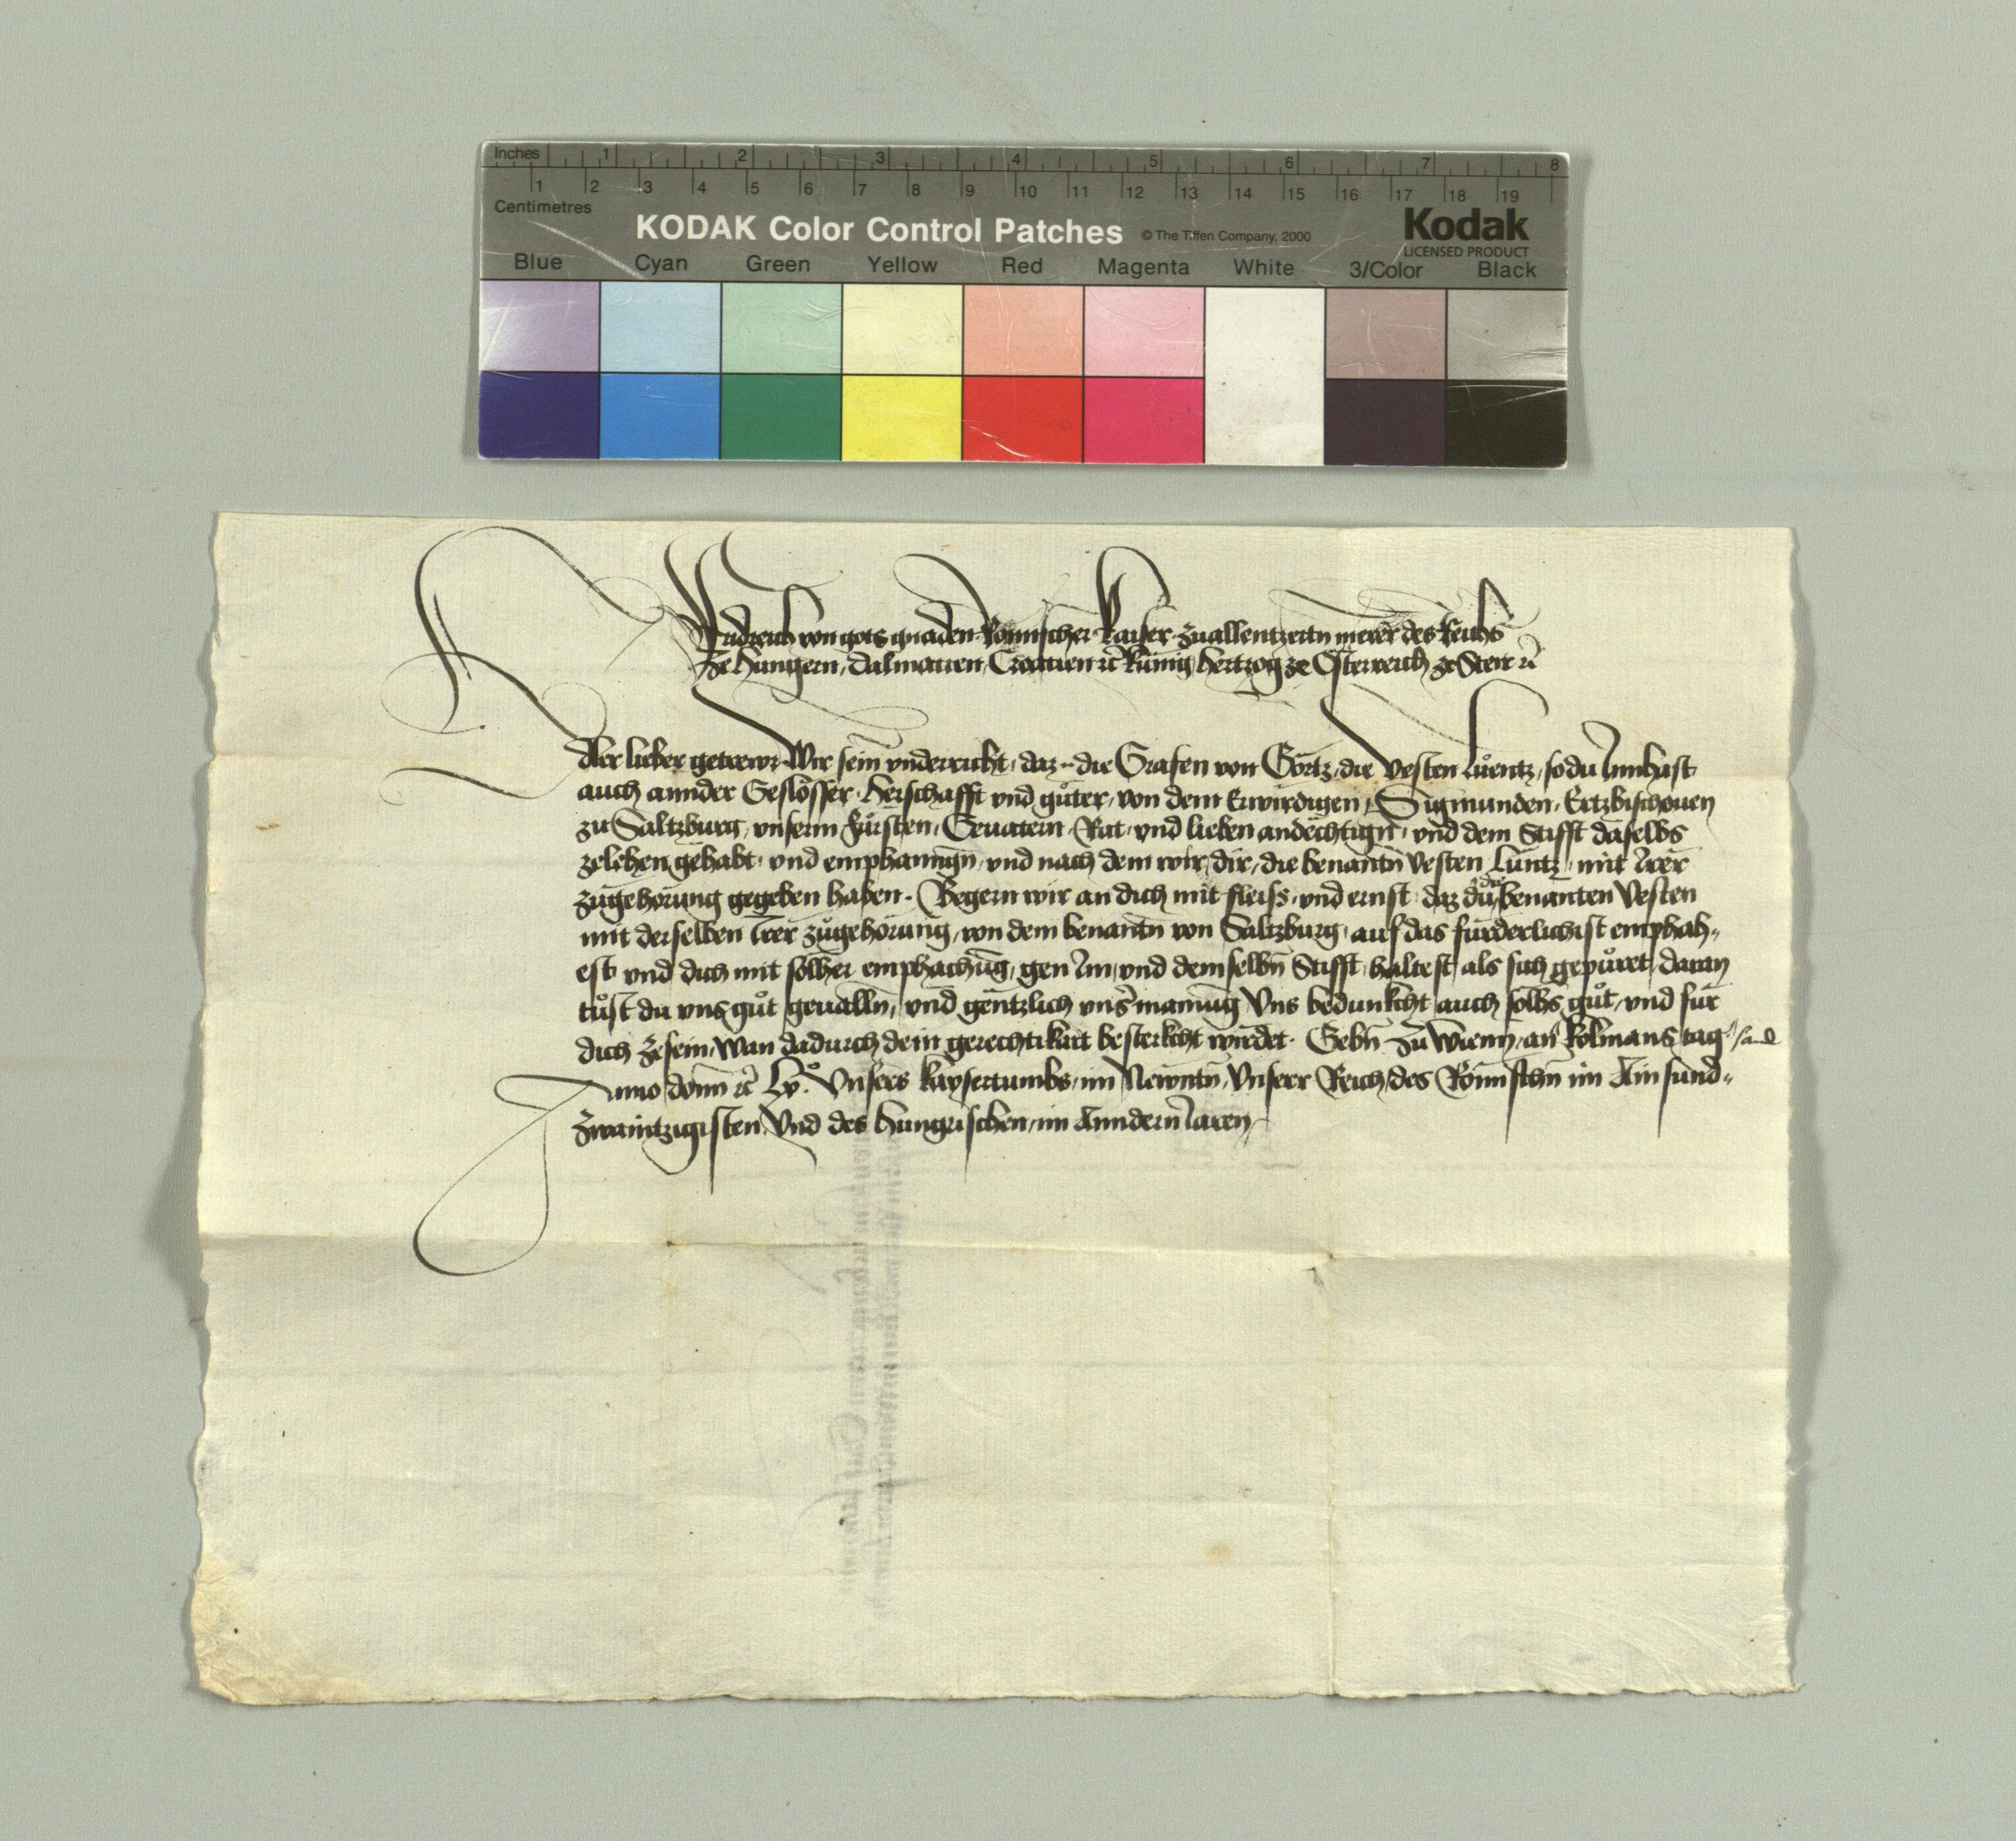 Inches 1 2 3 4 5 6 7 8
1 2 3 4 5 6 7 8 9 10 11 12 13 14 15 16 17 18 19
Centimetres
KODAK Color Control Patches © The Tiffen Company, 2000 Kodak
LICENSED PRODUCT
Blue Cyan Green Yellow Red Magenta White 3/Color Black
Fridreich von gots gnaden Römischer Kaiser zuallentzeitn merer des Reichs
ze Hungern, Dalmacien, Croacien ꝛc̃ kunig Hertzog ze Österreich ze Steir ꝛc̃
Edler lieber getrewr Wir sein vnderricht, daz die Grafen von Görtz, die Vesten Lůentz, so du Innhast
auch annder Geslösser, Herschafft vnd gůter, von dem Erwirdigen, Sigmunden, Ertzbischouen
zu Saltzburg, vnserm fürsten, Geuatern, Rat, vnd lieben andechtign, vnd dem Stifft daselbs
zelehen gehabt, vnd emphanngn, vnd nach dem wir, dir, die benantn Vesten Lüntz, mit Irer
zůgehörung gegeben haben. Begern wir an dich mit fleiss, vnd ernst, daz du die benanten Vesten
mit derselben Irer zůgehörung, von dem benantn von Saltzburg, auf das fürderlichist emphah-
est vnd dich mit solher emphachũg, gen Im, vnd demselbn Stifft, haltest als sich gepůret, daran
tůst du vns gůt geualln, vnd gentzlich vnsˀ mainũg Vns bedunkcht auch solhs gůt, vnd für
dich ze sein, Wan dadurch dein gerechtikait besterkcht wirdet. Gebn zu Wienn, an sand Kolmans tag
Anno domı̃ ꝛc̃ Lxº. Vnsers kaysertumbs, im Newntn, Vnserr Reich, des Römischn im Ainsund-
zwaintzigisten Vnd des Hungrischen, im Anndern Iaren